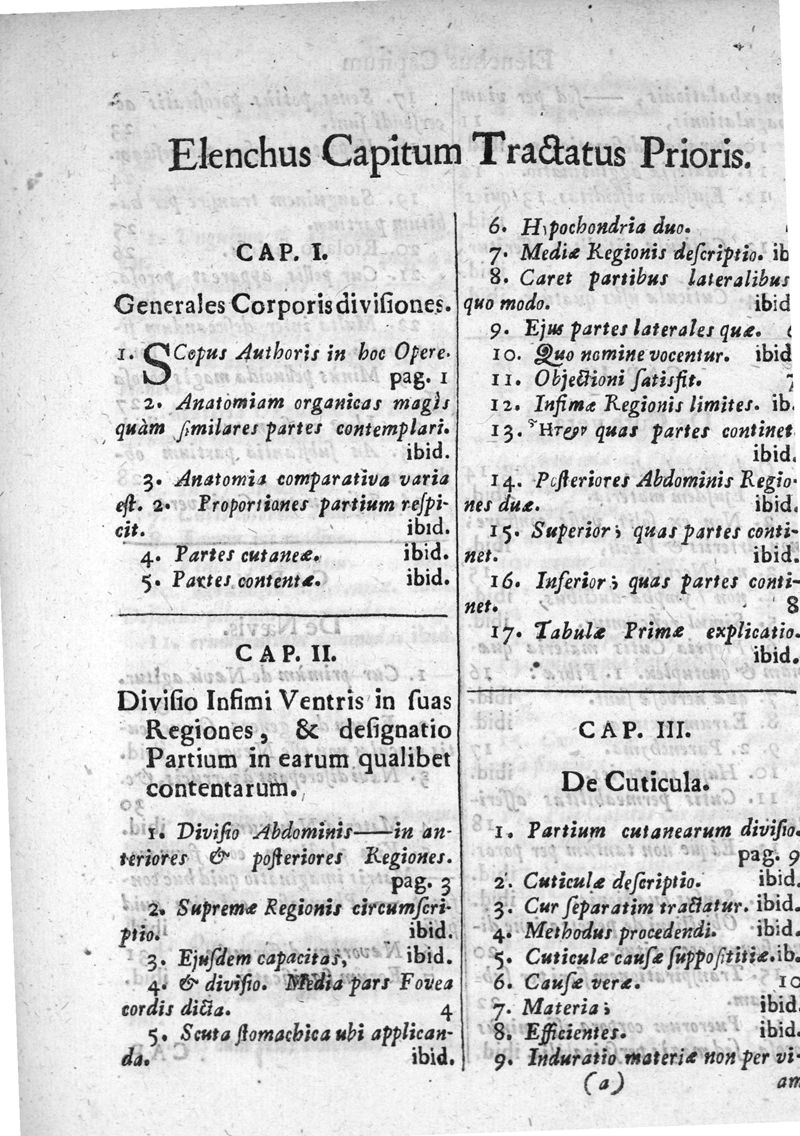 Elenchus Capitum Tractatus Prioris.
CAP. I.
Generales Corporis divisiones.
1. SCopus Authoris in hoc Opere.
pag. 1
2. Anatomiam organicas magis
quàm similares partes contemplari.
ibid.
3. Anatomia comparativa varia
est. 2. Proportiones partium respi-
cit. ibid.
4. Partes cutaneæ. ibid.
5. Partes contentæ. ibid.
CAP. II.
Divisio Infimi Ventris in suas
Regiones, & designatio
Partium in earum qualibet
contentarum.
1. Divisio Abdominis——in an-
teriores & posteriores Regiones.
pag. 3
2. Supremæ Regionis circumscri-
ptio. ibid.
3. Ejusdem capacitas, ibid.
4. & divisio. Media pars Fovea
cordis dicta. 4
5. Scuta stomachica ubi applican-
da. ibid.
6. Hypochondria duo.
7. Mediæ Regionis descriptio. ib
8. Caret partibus lateralibus
quo modo. ibid
9. Ejus partes laterales quæ.
10. Quo nomine vocentur. ibid
11. Objectioni satisfit. 7
12. Infimæ Regionis limites. ib.
13. Ἦτρον quas partes continet
ibid.
14. Posteriores Abdominis Regio-
nes duæ. ibid.
15. Superior; quas partes conti-
net. ibid.
16. Inferior; quas partes conti-
net. 8
17. Tabulæ Primæ explicatio.
ibid.
CAP. III.
De Cuticula.
1. Partium cutanearum divisio.
pag. 9
2. Cuticulæ descriptio. ibid.
3. Cur separatim tractatur. ibid.
4. Methodus procedendi. ibid.
5. Cuticulæ causæ supposititiæ. ib.
6. Causæ veræ. 10
7. Materia; ibid.
8. Efficientes. ibid.
9. Induratio materiæ non per vi-
(a) am